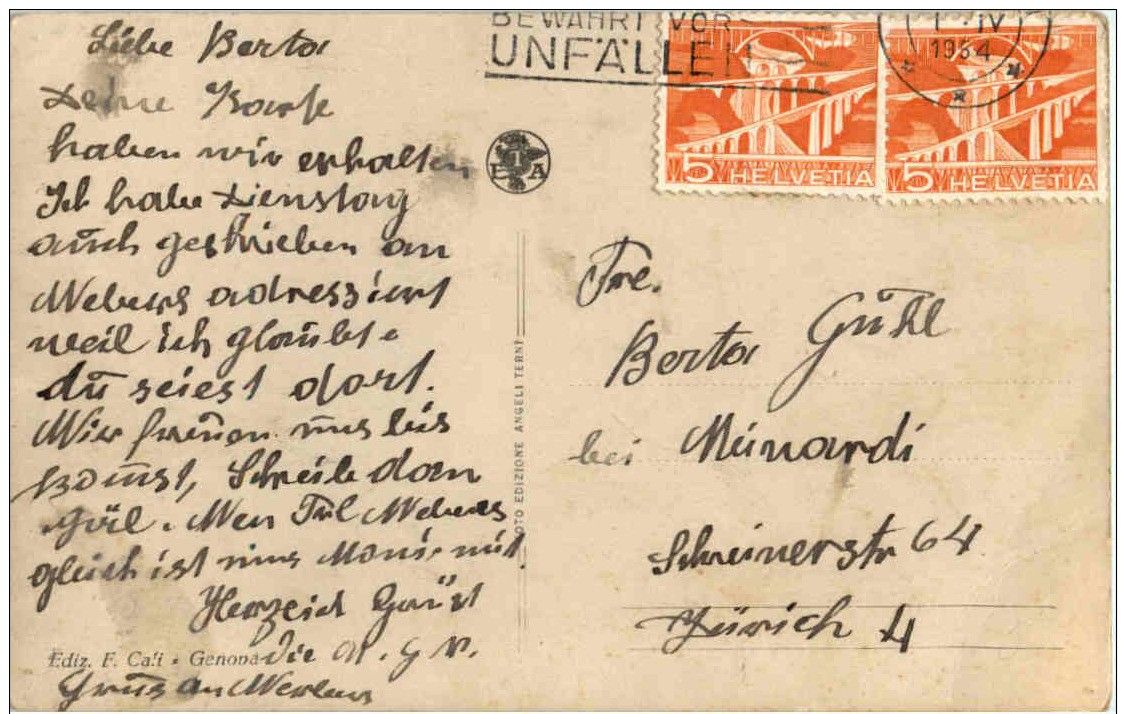 Liebe Berta
Deine Karte
haben wir erhalten
Ich habe Dienstag
auch geschrieben an
Webers adressiert
weil ich glaubte
du seiest dort.
Wir freuen uns bis
komst, Schreibe dan
Göl. Wen Frl Webers
gleich ist nims Moni mit.
Herzlich Grüst
Die M. g V.
Grus an Werners
Ediz. F. Cali - Genova
FOTO EDIZIONE ANGELI TERNI
E A
BEWAHRT VOR
UNFÄLLEN
IV
1954
5 HELVETIA
5 HELVETIA
Fre.
Berta Gühl
bei Meinardi
Schreinerstr 64
Zürich 4